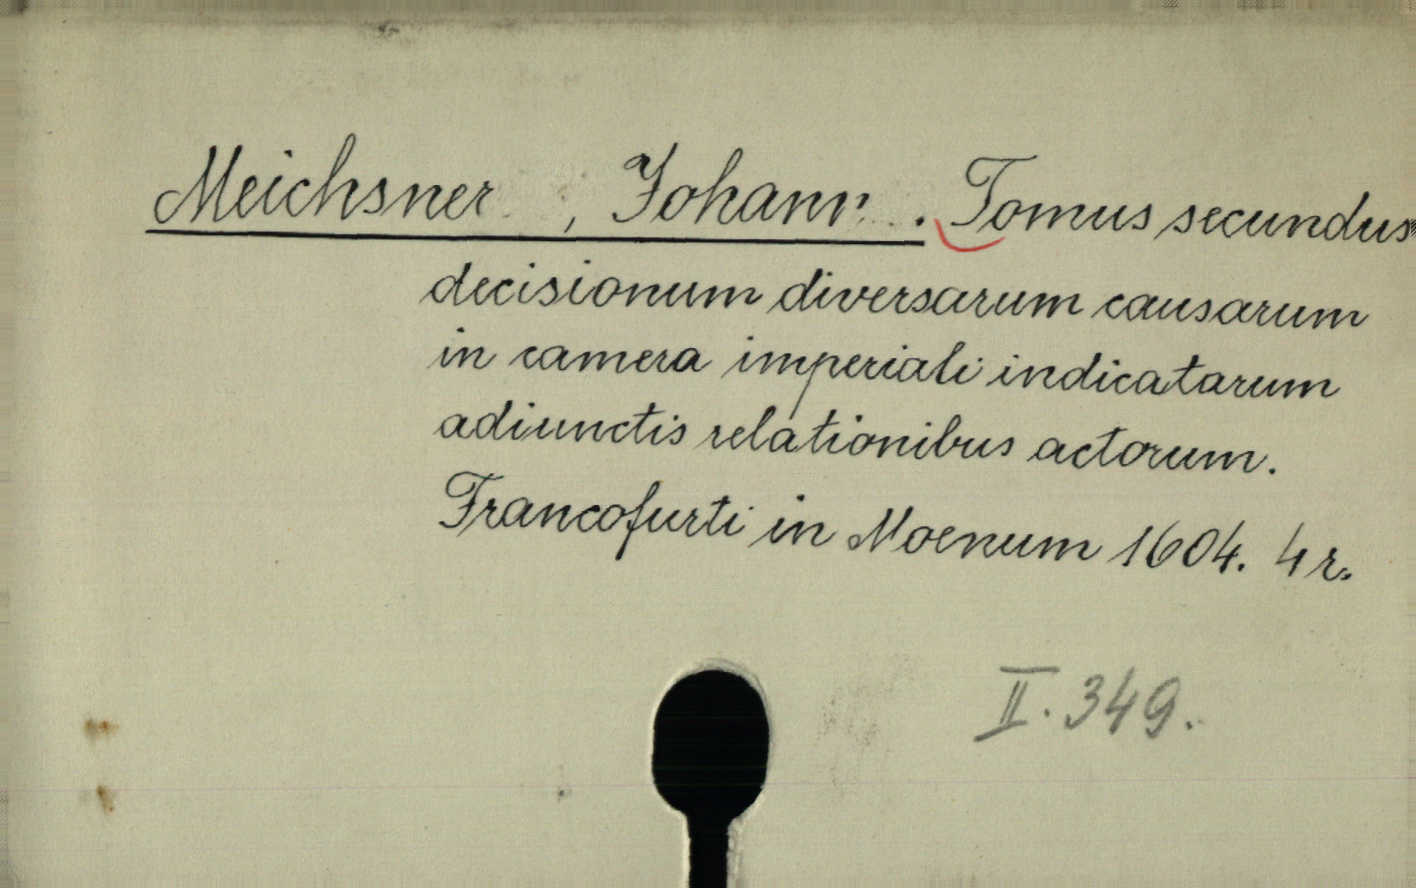 Meichsner , Johann . Tomus secundus
decisionum diversarum causarum
in camera imperiali indicatarum
adiunctis relationibus actorum.
Francofurti in Moenum 1604. 4 r.
II. 349.